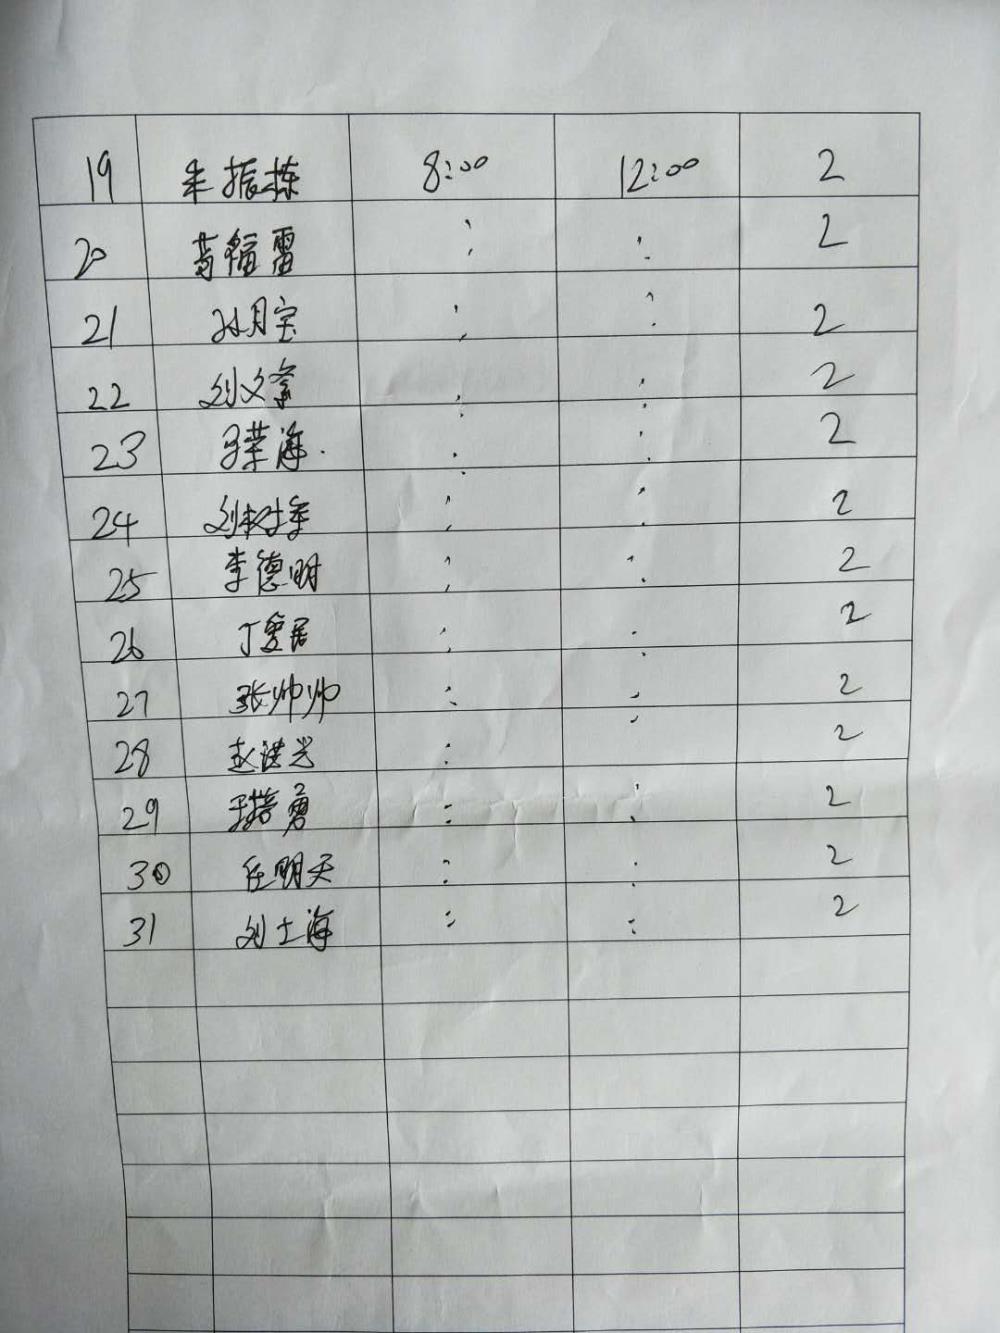 19 朱振栋 8:00 12:00 2
20 葛福雷 : : 2
21 孙月宝 : : 2
22 刘文 : : 2
23 荣海 : : 2
24 刘树 : : 2
25 李德明 : : 2
26 丁爱居 : : 2
27 张帅帅 : : 2
28 赵洪光 : : 2
29 王培勇 : : 2
30 任明天 : : 2
31 刘士海 : : 2